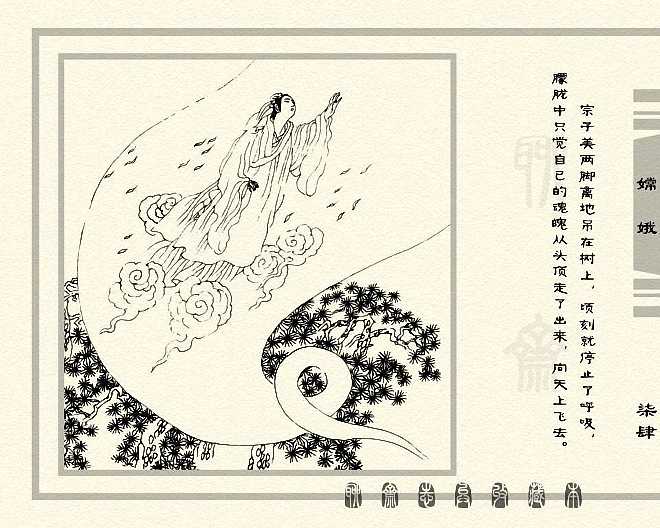 嫦娥
柒肆
宗子美两脚离地吊在树上，顷刻就停止了呼吸，
朦胧中只觉自己的魂魄从头顶走了出来，向天上飞去。
聊斋志异收藏本